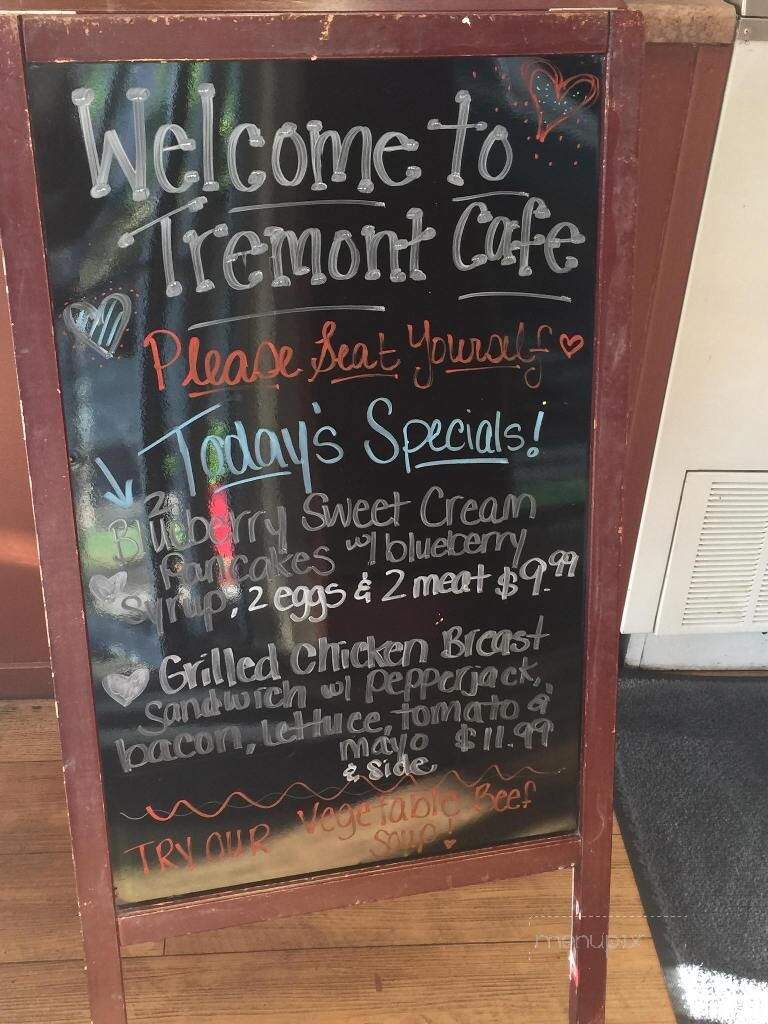 Welcome to
Tremont Cafe
Please Seat Yourself
Today's Specials!
2
Blueberry Sweet Cream
Pancakes w/ blueberry
syrup, 2 eggs & 2 meat $9.99
Grilled Chicken Breast
Sandwich w/ pepperjack,
bacon, lettuce, tomato &
mayo $11.99
& side
TRY OUR Vegetable Beef
Soup!
menupix